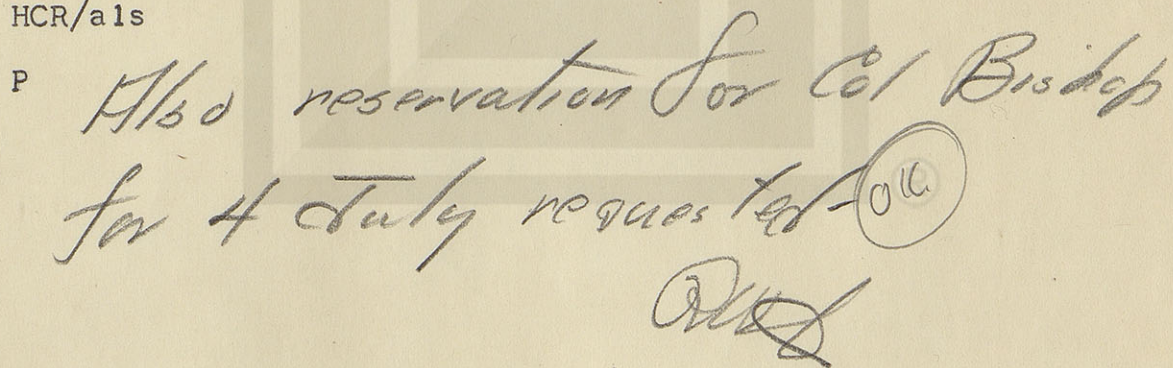 HCR/als
P Also reservation for Col Bishop
for 4 July requested - OK